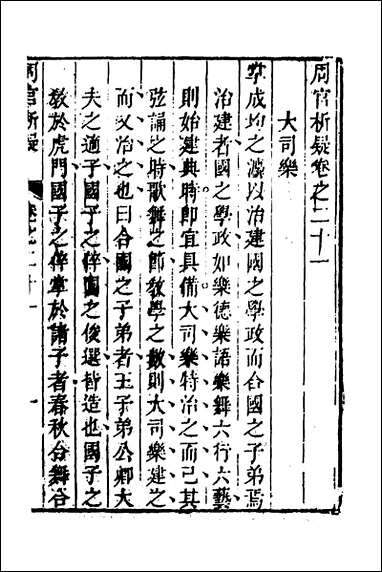 周官析疑卷之二十一
大司樂
掌成均之灋以治建國之學政而合國之子弟焉
治建者國之學政如樂德樂語樂舞六行六藝
則始建典時卽宜具備大司樂特治之而已其
弦誦之時歌舞之節敎學之數則大司樂建之
而又治之也曰合國之子弟者王子弟公卿大
夫之適子國子之倅國之俊選皆造也國子之
敎於虎門國子之倅掌於諸子者春秋合舞合
周官析疑 卷之二十一 一